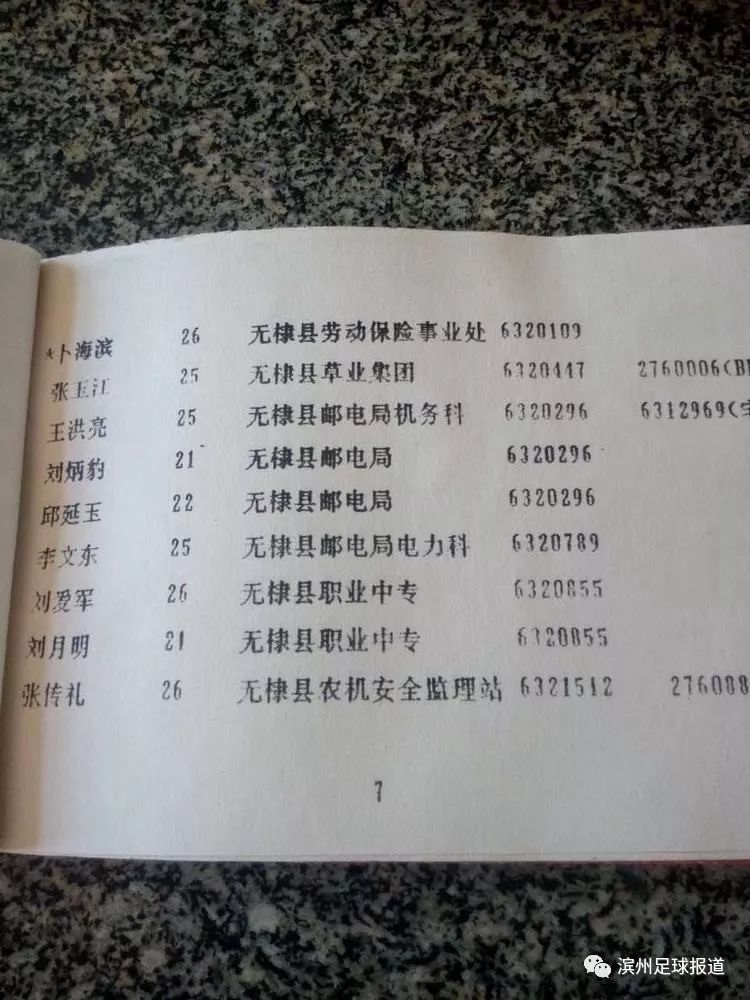 *卜海滨 26 无棣县劳动保险事业处 6320109
张玉江 25 无棣县草业集团 6320447 2760006(B
王洪亮 25 无棣县邮电局机务科 6320296 6312969(
刘炳豹 21 无棣县邮电局 6320296
邱延玉 22 无棣县邮电局 6320296
李文东 25 无棣县邮电局电力科 6320789
刘爱军 26 无棣县职业中专 6320855
刘月明 21 无棣县职业中专 6320855
张传礼 26 无棣县农机安全监理站 6321512 276088
7
滨州足球报道